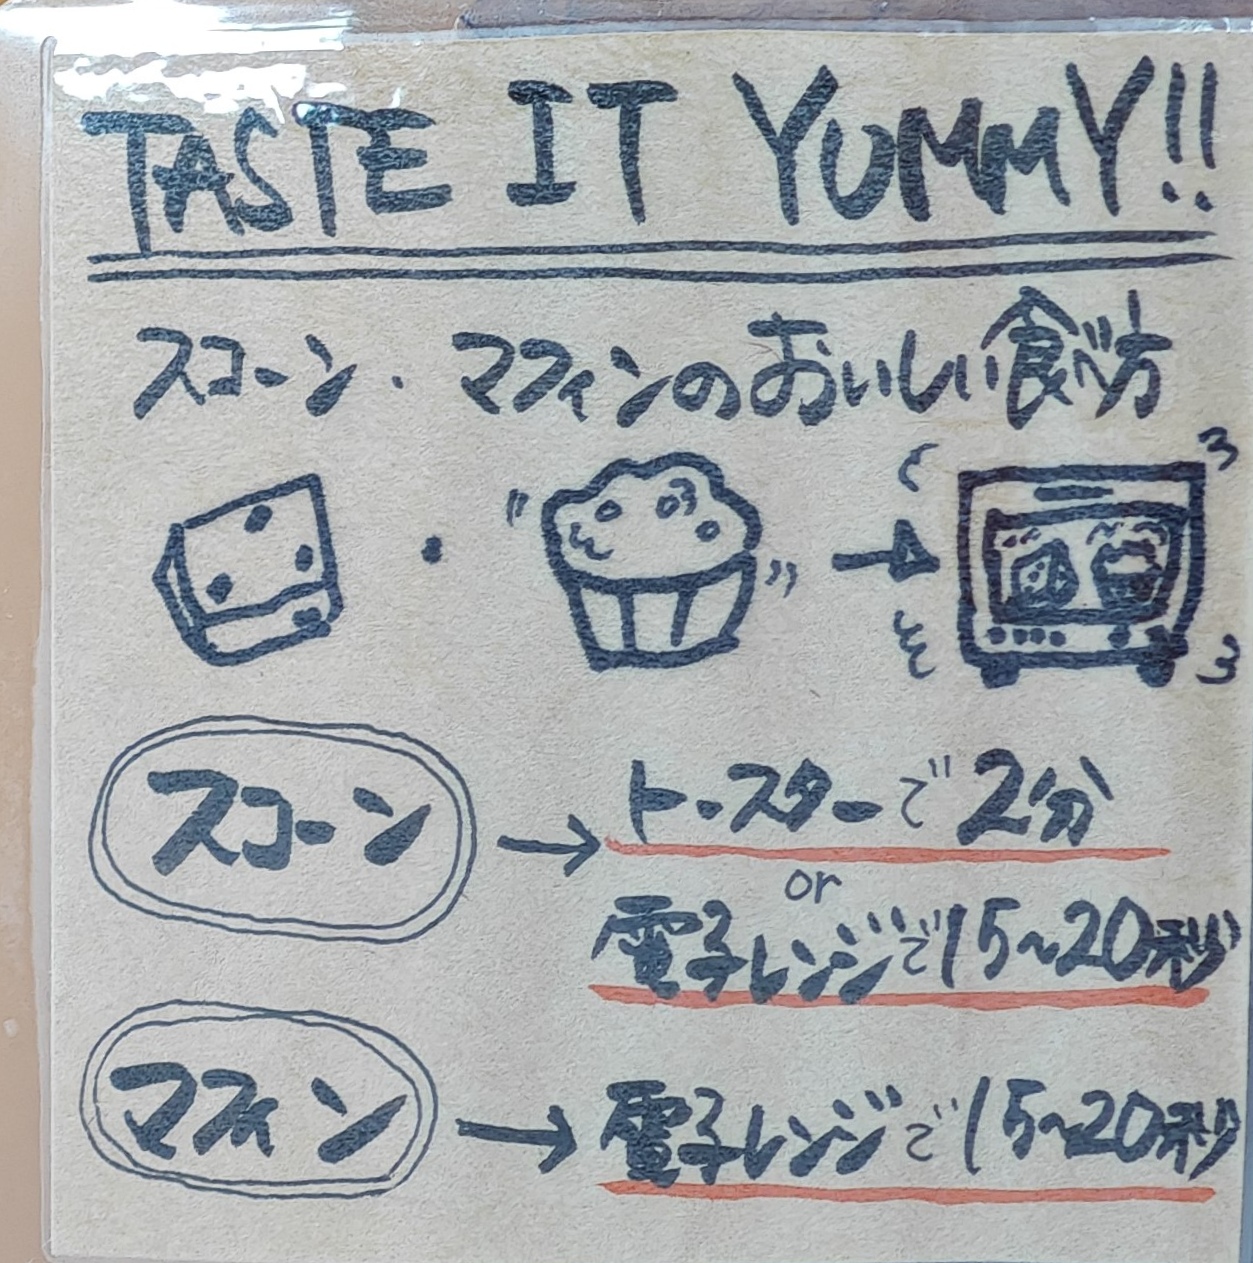 TASTE IT YUMMY!!
スコーン・マフィンのおいしい食べ方
スコーン → トースターで2分
or
電子レンジで15~20秒
マフィン → 電子レンジで15~20秒